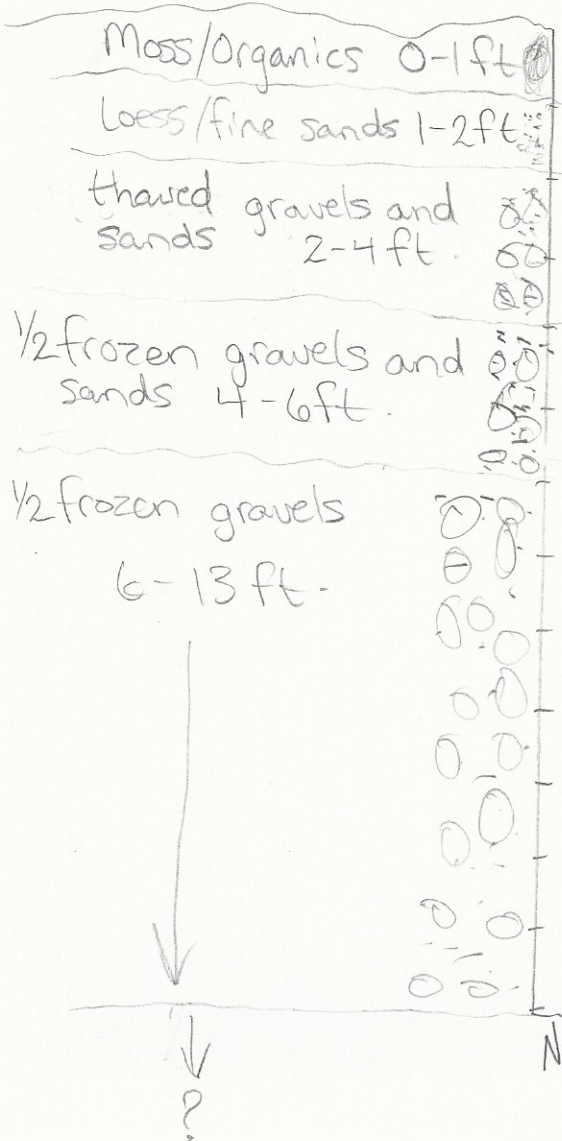 Moss/Organics 0-1ft
Loess/fine sands 1-2ft.
thawed gravels and
sands 2-4 ft.
1/2 frozen gravels and
sands 4-6ft.
1/2 frozen gravels
6-13 ft.
?
N